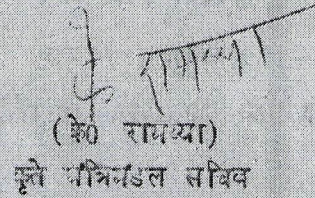 के रामय्या
(के0 रामय्या)
कृते मंत्रिमंडल सचिव